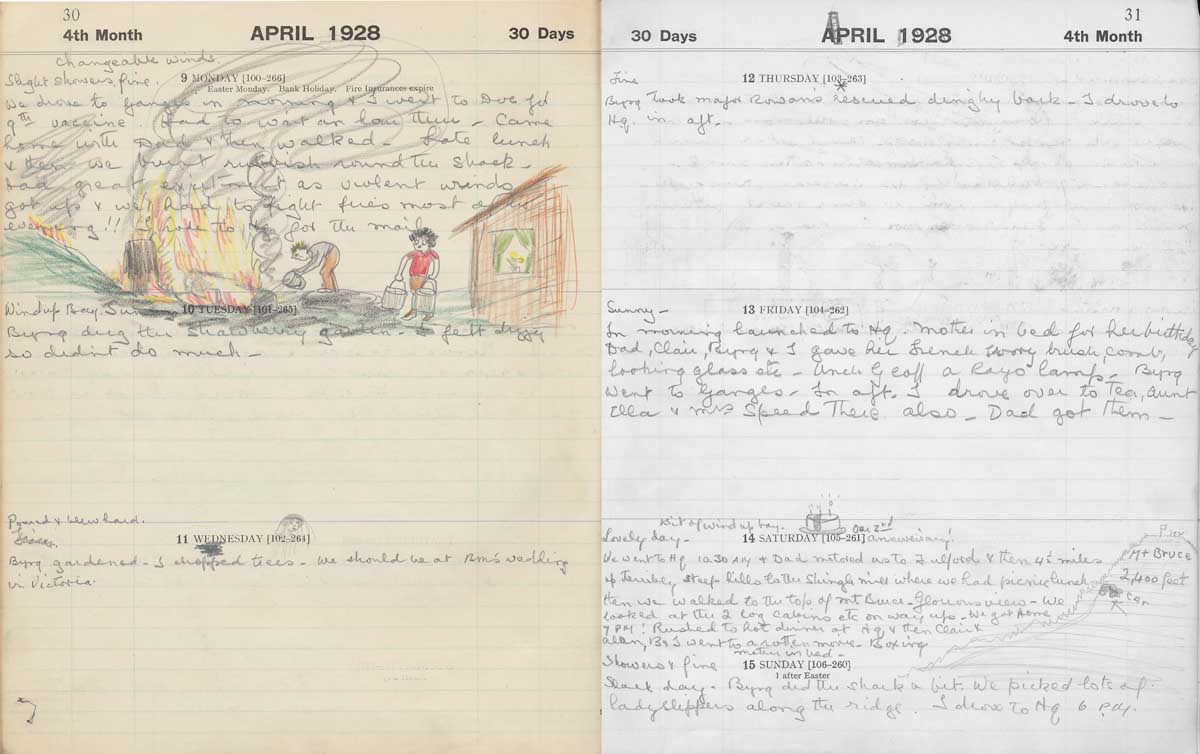 30
APRIL 1928
4th Month
30 Days
Changeable winds.
Slight showers, fine.
9 MONDAY [100-266]
Easter Monday. Bank Holiday. Fire Insurances expire
We drove to Ganges in morning & I went to Doc for
9th vaccine. Had to wait an hour there - Came
home with Dad & then walked - Late lunch
& then we burnt rubbish round the shack -
Had great excitement as violent winds
got up & we had to fight fires most of the
evening!! I rode to Hq for the mail
Wind up Bay. Sun
10 TUESDAY [101-265]
Byng dug the strawberry garden - I felt dizzy
so didint do much -
Poured & blew hard.
11 WEDNESDAY [102-264]
Byng gardened - I chopped trees - We should be at wedding
in Victoria.
31
30 Days
APRIL 1928
4th Month
Fine
12 THURSDAY [103-263]
Byng took major Rowan's rescued dinghy back - I drove to
Hq. in aft.
Sunny -
13 FRIDAY [104-262]
In morning launched to Hq. Mother in bed for her birthday
Dad, Clair, Byng & I gave her French Ivory brush, comb,
looking glass etc - Uncle Geoff a Rayo lamp - Byng
went to Ganges - In aft. I drove over to Tea, Aunt
Ella & Mrs Speed there also - Dad got them -
Bit of wind up bay.
Our 2nd anniversary!
Lovely day -
14 SATURDAY [105-261]
We went to Hq 10.30 AM & Dad motored us to Fulford & then 4½ miles
of terribly steep hills to the Shingle mill where we had picnic lunch
then we walked to the top of Mt Bruce - Glorious view - We
looked at the 2 log cabins etc on way up - We got home
7 PM! Rushed to hot dinner at Hq & then Clair &
Alan, B & I went to a rotten movie - Boxing
Mt Bruce
2,400 feet
car
Showers & fine
mother in bed -
15 SUNDAY [106-260]
1 after Easter
Slack day - Byng did the shack a bit. We picked lots of
ladyslippers along the ridge. I drove to Hq 6 P.M.